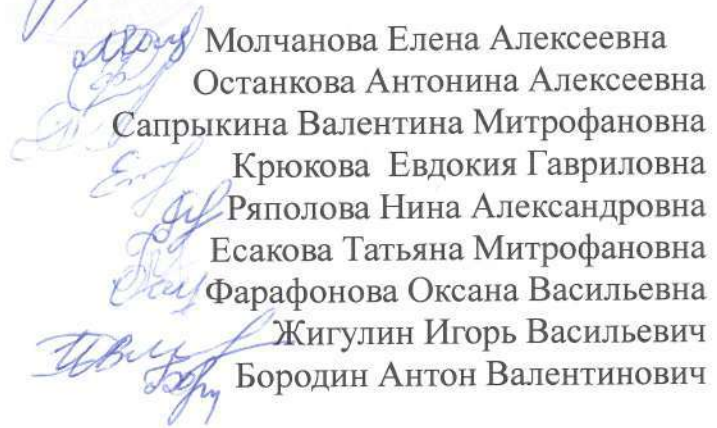 Молчанова Елена Алексеевна
Останкова Антонина Алексеевна
Сапрыкина Валентина Митрофановна
Крюкова Евдокия Гавриловна
Ряполова Нина Александровна
Есакова Татьяна Митрофановна
Фарафонова Оксана Васильевна
Жигулин Игорь Васильевич
Бородин Антон Валентинович